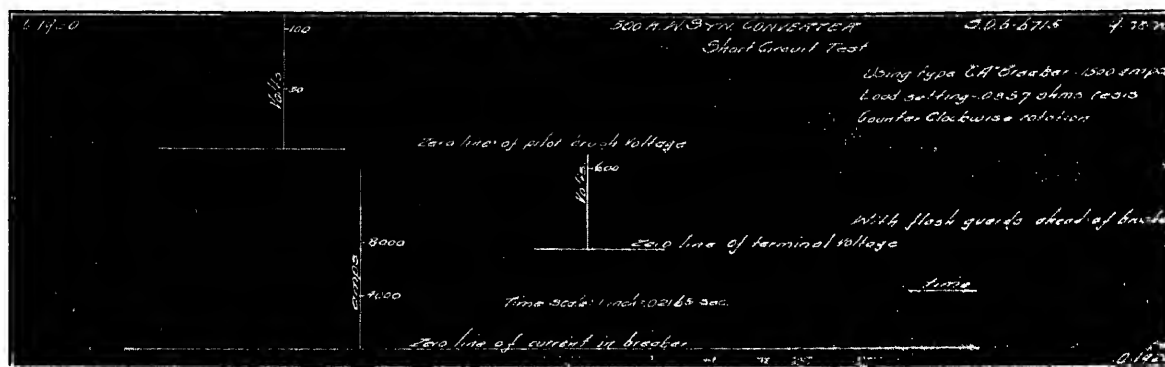 500 K.W. SYN. CONVERTER
Short Circuit Test
Using type "CA" Breaker-1500 amps
Load setting-.0357 ohms resis
Counter Clockwise rotation
100
50
Volts
Zero line of pilot brush voltage
600
Volts
With flash guards ahead of
Zero line of terminal voltage
8000
4000
amps
time
Time scale 1 inch=.02165 sec.
Zero line of current in breaker